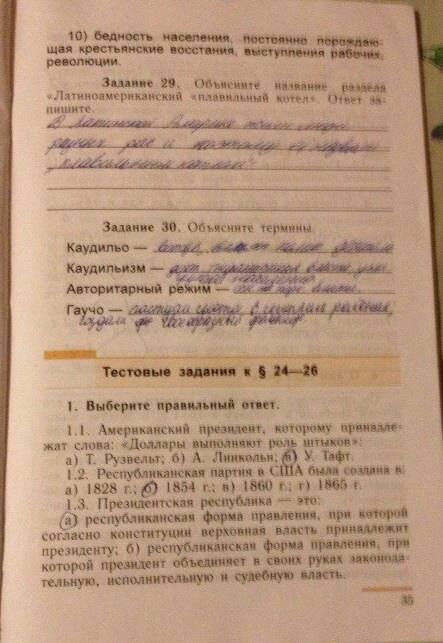 10) бедность населения, постоянно порождаю-
щая крестьянские восстания, выступления рабочих,
революции.
Задание 29. Объясните название раздела
«Латиноамериканский «плавильный котел». Ответ за-
пишите.
В Латинской Америке жили люди
разных рас и поэтому её назвали
"плавильным котлом".
Задание 30. Объясните термины.
Каудильо —
Каудильизм —
Авторитарный режим —
Гаучо — пастухи скота, в
создали
Тестовые задания к § 24—26
1. Выберите правильный ответ.
1.1. Американский президент, которому принадле-
жат слова: «Доллары выполняют роль штыков»:
а) Т. Рузвельт; б) А. Линкольн; в) У. Тафт.
1.2. Республиканская партия в США была создана в:
а) 1828 г.; б) 1854 г.; в) 1860 г.; г) 1865 г.
1.3. Президентская республика — это:
а) республиканская форма правления, при которой
согласно конституции верховная власть принадлежит
президенту; б) республиканская форма правления, при
которой президент объединяет в своих руках законода-
тельную, исполнительную и судебную власть.
35